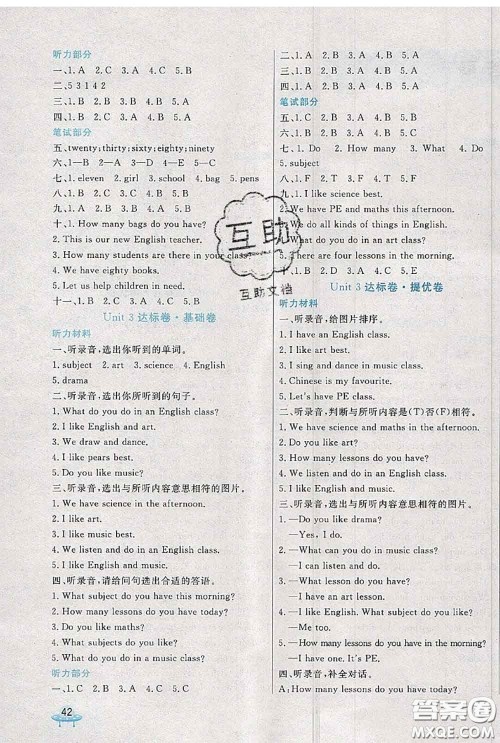 听力部分
一、1. A 2. C 3. A 4. C 5. B
二、5 3 1 4 2
三、1. B 2. B 3. A 4. B 5. A
四、1. A 2. B 3. B 4. A 5. B
笔试部分
五、twenty;thirty;sixty;eighty;ninety
六、1—B 2—A 3—D 4—C
七、1. eleven 2. girl 3. school 4. bag 5. pens
八、1. A 2. B 3. A 4. A 5. B
九、1. B 2. C 3. A 4. C 5. B
十、1. How many bags do you have?
2. This is our new English teacher.
3. How many students are there in your class
4. We have eighty books.
5. Let us help children in need.
十一、1. B 2. A 3. B 4. B 5. B
Unit 3 达标卷·基础卷
听力材料
一、听录音,选出你听到的单词。
1. subject 2. art 3. science 4. English
5. drama
二、听录音,选出你所听到的句子。
1. What do you do in an English class?
2. I like art and English.
3. We draw and dance.
4. I like pears best.
5. Do you like music?
三、听录音,选出与所听内容意思相符的图片。
1. We have science in the afternoon.
2. I like art.
3. I like music best.
4. We listen and do in an English class.
5. We dance in a music class.
四、听录音,请给问句选出合适的答语。
1. What subject do you have this morning?
2. How many lessons do you have today?
3. Do you like maths?
4. What subject do you like?
5. What do you do in a music class?
听力部分
一、1. C 2. A 3. B 4. A 5. B
42
二、1. A 2. B 3. A 4. B 5. A
三、1. B 2. B 3. A 4. A 5. A
四、1. A 2. B 3. A 4. B 5. B
笔试部分
五、1. Do 2. How 3. many 4. What 5. Do
六、1. music 2. English 3. maths 4. art
5. subject
七、1. A 2. B 3. A 4. B 5. B
八、1. B 2. A 3. A 4. B 5. A
九、1. I like science best.
2. We have PE and maths this afternoon.
3. We do all kinds of things in English.
4. What do you do in an art class?
5. How many lessons do you have?
十、1. T 2. F 3. T 4. F 5. F
Unit 3 达标卷·提优卷
听力材料
一、听录音,给图片排序。
1. We have an English class.
2. I like art best.
3. I sing and dance in music class.
4. Chinese is my favourite.
5. Let's have PE class.
二、听录音,判断与所听内容是(T)否(F)相符。
1. We have science and maths this afternoon.
2. Do you like art?
3. How many lessons do you have?
4. We listen and do in an English class.
5. I like English and music.
三、听录音,选出与所听内容意思相符的图片。
1. —Do you like drama?
—Yes, I do.
2. —What do you do in music class?
—I can listen and do in English class.
3. —Do you have music class?
—I have an art class.
4. —I like English. What subject do you like?
—Me too.
5. —How many lessons do you have in the morning?
—I have one. It's PE.
四、听录音,补全对话。
A: How many lessons do you have today?
互助
互助文档
答案圈
MXQE.COM